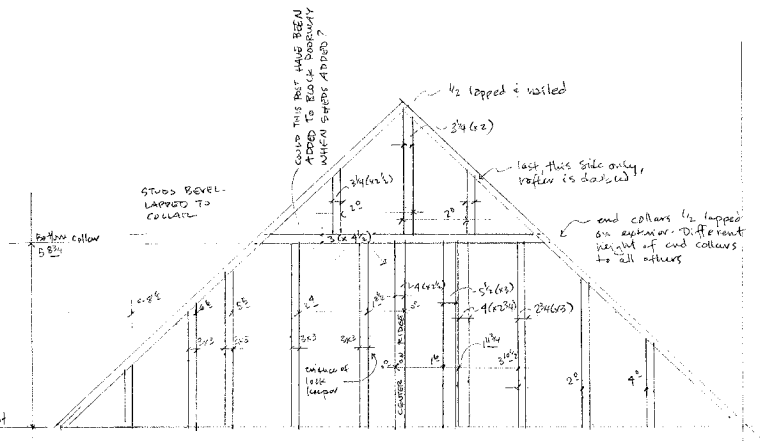 COULD THIS POST HAVE BEEN
ADDED TO BLOCK DOORWAY
WHEN SHEDS ADDED?
1/2 lapped & nailed
3 1/4 (x2)
last, this side only,
rafter is doubled
STUDS BEVEL-
LAPPED TO
COLLAR
3 1/4 (x2 1/2)
2⁰
2⁰
end collars 1/2 lapped
on exterior. Different
height of end collars
to all others
Bottom collar
5 8 3/4
3 (x 4 1/2)
4 (x2 1/2)
5 1/2 (x3)
4 (x2 3/4)
2 3/4 (x3)
3x3
3x3
3x3
3x3
evidence of
lock
keeper
CENTER ON RIDGE
1 11 3/4
3 10 1/2
2⁰
4⁰